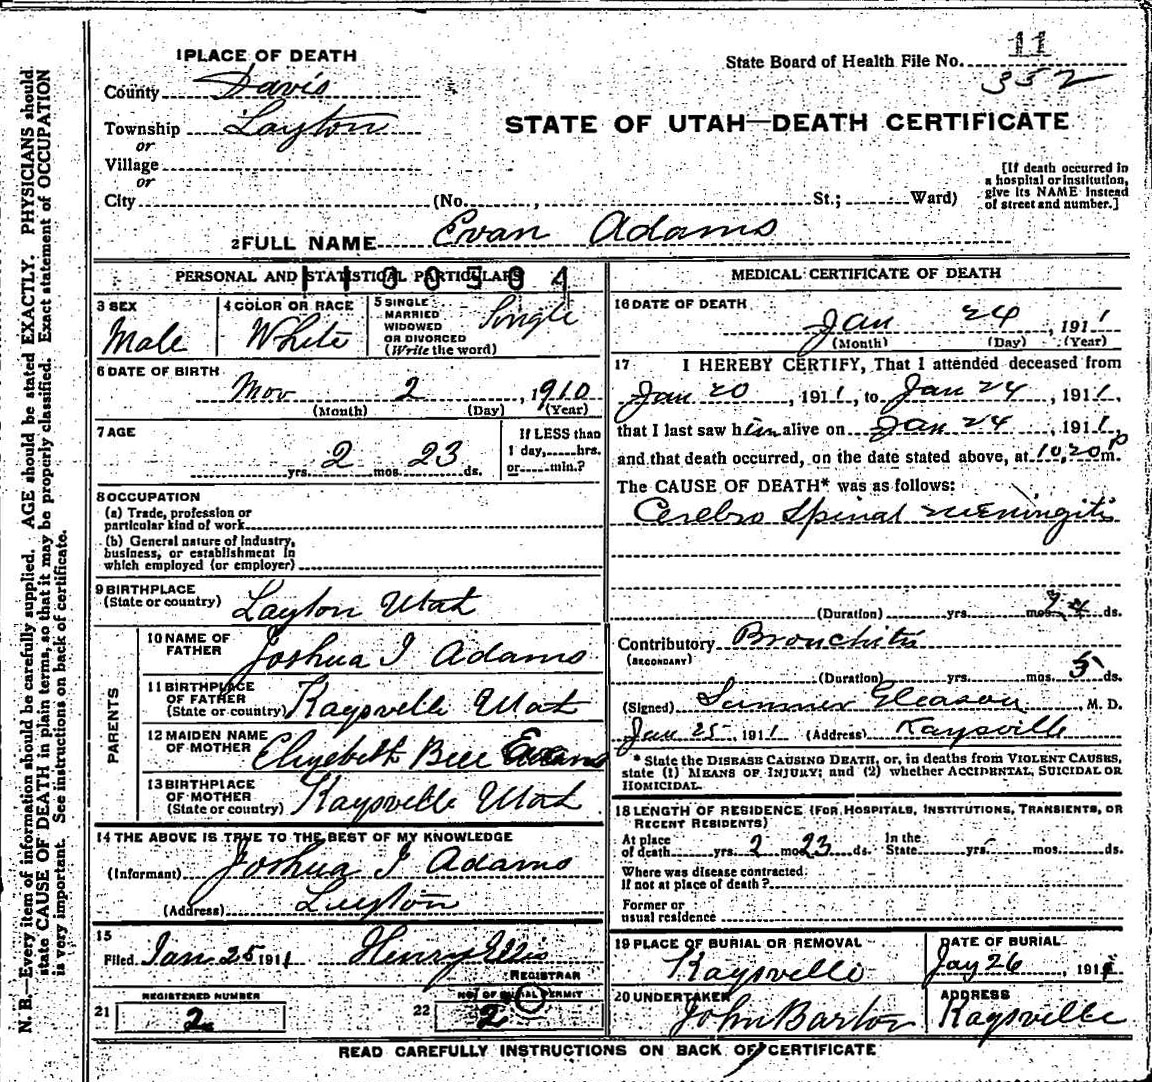 11
State Board of Health File No. 352
1 PLACE OF DEATH
County Davis
Township Layton
or
Village
or
City
STATE OF UTAH—DEATH CERTIFICATE
[If death occurred in
a hospital or institution,
give its NAME instead
of street and number.]
(No. , St.; Ward)
2 FULL NAME Evan Adams
PERSONAL AND STATISTICAL PARTICULARS
3 SEX
Male
4 COLOR OR RACE
White
5 SINGLE
MARRIED
WIDOWED
OR DIVORCED
(Write the word)
Single
6 DATE OF BIRTH
Nov 2, 1910
(Month) (Day) (Year)
7 AGE
yrs. 2 mos. 23 ds.
If LESS than
1 day, hrs.
or min.?
8 OCCUPATION
(a) Trade, profession or
particular kind of work
(b) General nature of Industry,
business, or establishment in
which employed (or employer)
9 BIRTHPLACE
(State or country) Layton Utah
PARENTS
10 NAME OF
FATHER Joshua I Adams
11 BIRTHPLACE
OF FATHER
(State or country) Kaysville Utah
12 MAIDEN NAME
OF MOTHER Elizebeth Bell Evans
13 BIRTHPLACE
OF MOTHER
(State or country) Kaysville Utah
14 THE ABOVE IS TRUE TO THE BEST OF MY KNOWLEDGE
(Informant) Joshua I Adams
(Address) Layton
15
Filed Jan 25 1911 Henry Ellis
REGISTRAR
21 REGISTERED NUMBER
2
22 NO. OF BURIAL PERMIT
2
MEDICAL CERTIFICATE OF DEATH
16 DATE OF DEATH
Jan 24, 1911
(Month) (Day) (Year)
17 I HEREBY CERTIFY, That I attended deceased from
Jan 20, 1911, to Jan 24, 1911,
that I last saw him alive on Jan 24, 1911,
and that death occurred, on the date stated above, at 10.20 P m.
The CAUSE OF DEATH* was as follows:
Cerebro Spinal meningitis
(Duration) yrs. mos. ds.
Contributory Bronchitis
(SECONDARY)
(Duration) yrs. mos. 5 ds.
(Signed) Sumner Gleason, M. D.
Jan 25, 1911 (Address) Kaysville
* State the DISEASE CAUSING DEATH, or, in deaths from VIOLENT CAUSES,
state (1) MEANS OF INJURY; and (2) whether ACCIDENTAL, SUICIDAL OR
HOMICIDAL.
18 LENGTH OF RESIDENCE (FOR HOSPITALS, INSTITUTIONS, TRANSIENTS, OR
RECENT RESIDENTS)
At place
of death yrs. 2 mo 23 ds. In the
State yrs. mos. ds.
Where was disease contracted
If not at place of death?
Former or
usual residence
19 PLACE OF BURIAL OR REMOVAL
Kaysville
DATE OF BURIAL
Jay 26, 1911
20 UNDERTAKER
John Barton
ADDRESS
Kaysville
READ CAREFULLY INSTRUCTIONS ON BACK OF CERTIFICATE
N. B.—Every item of information should be carefully supplied. AGE should be stated EXACTLY. PHYSICIANS should
state CAUSE OF DEATH in plain terms, so that it may be properly classified. Exact statement of OCCUPATION
is very important. See instructions on back of certificate.